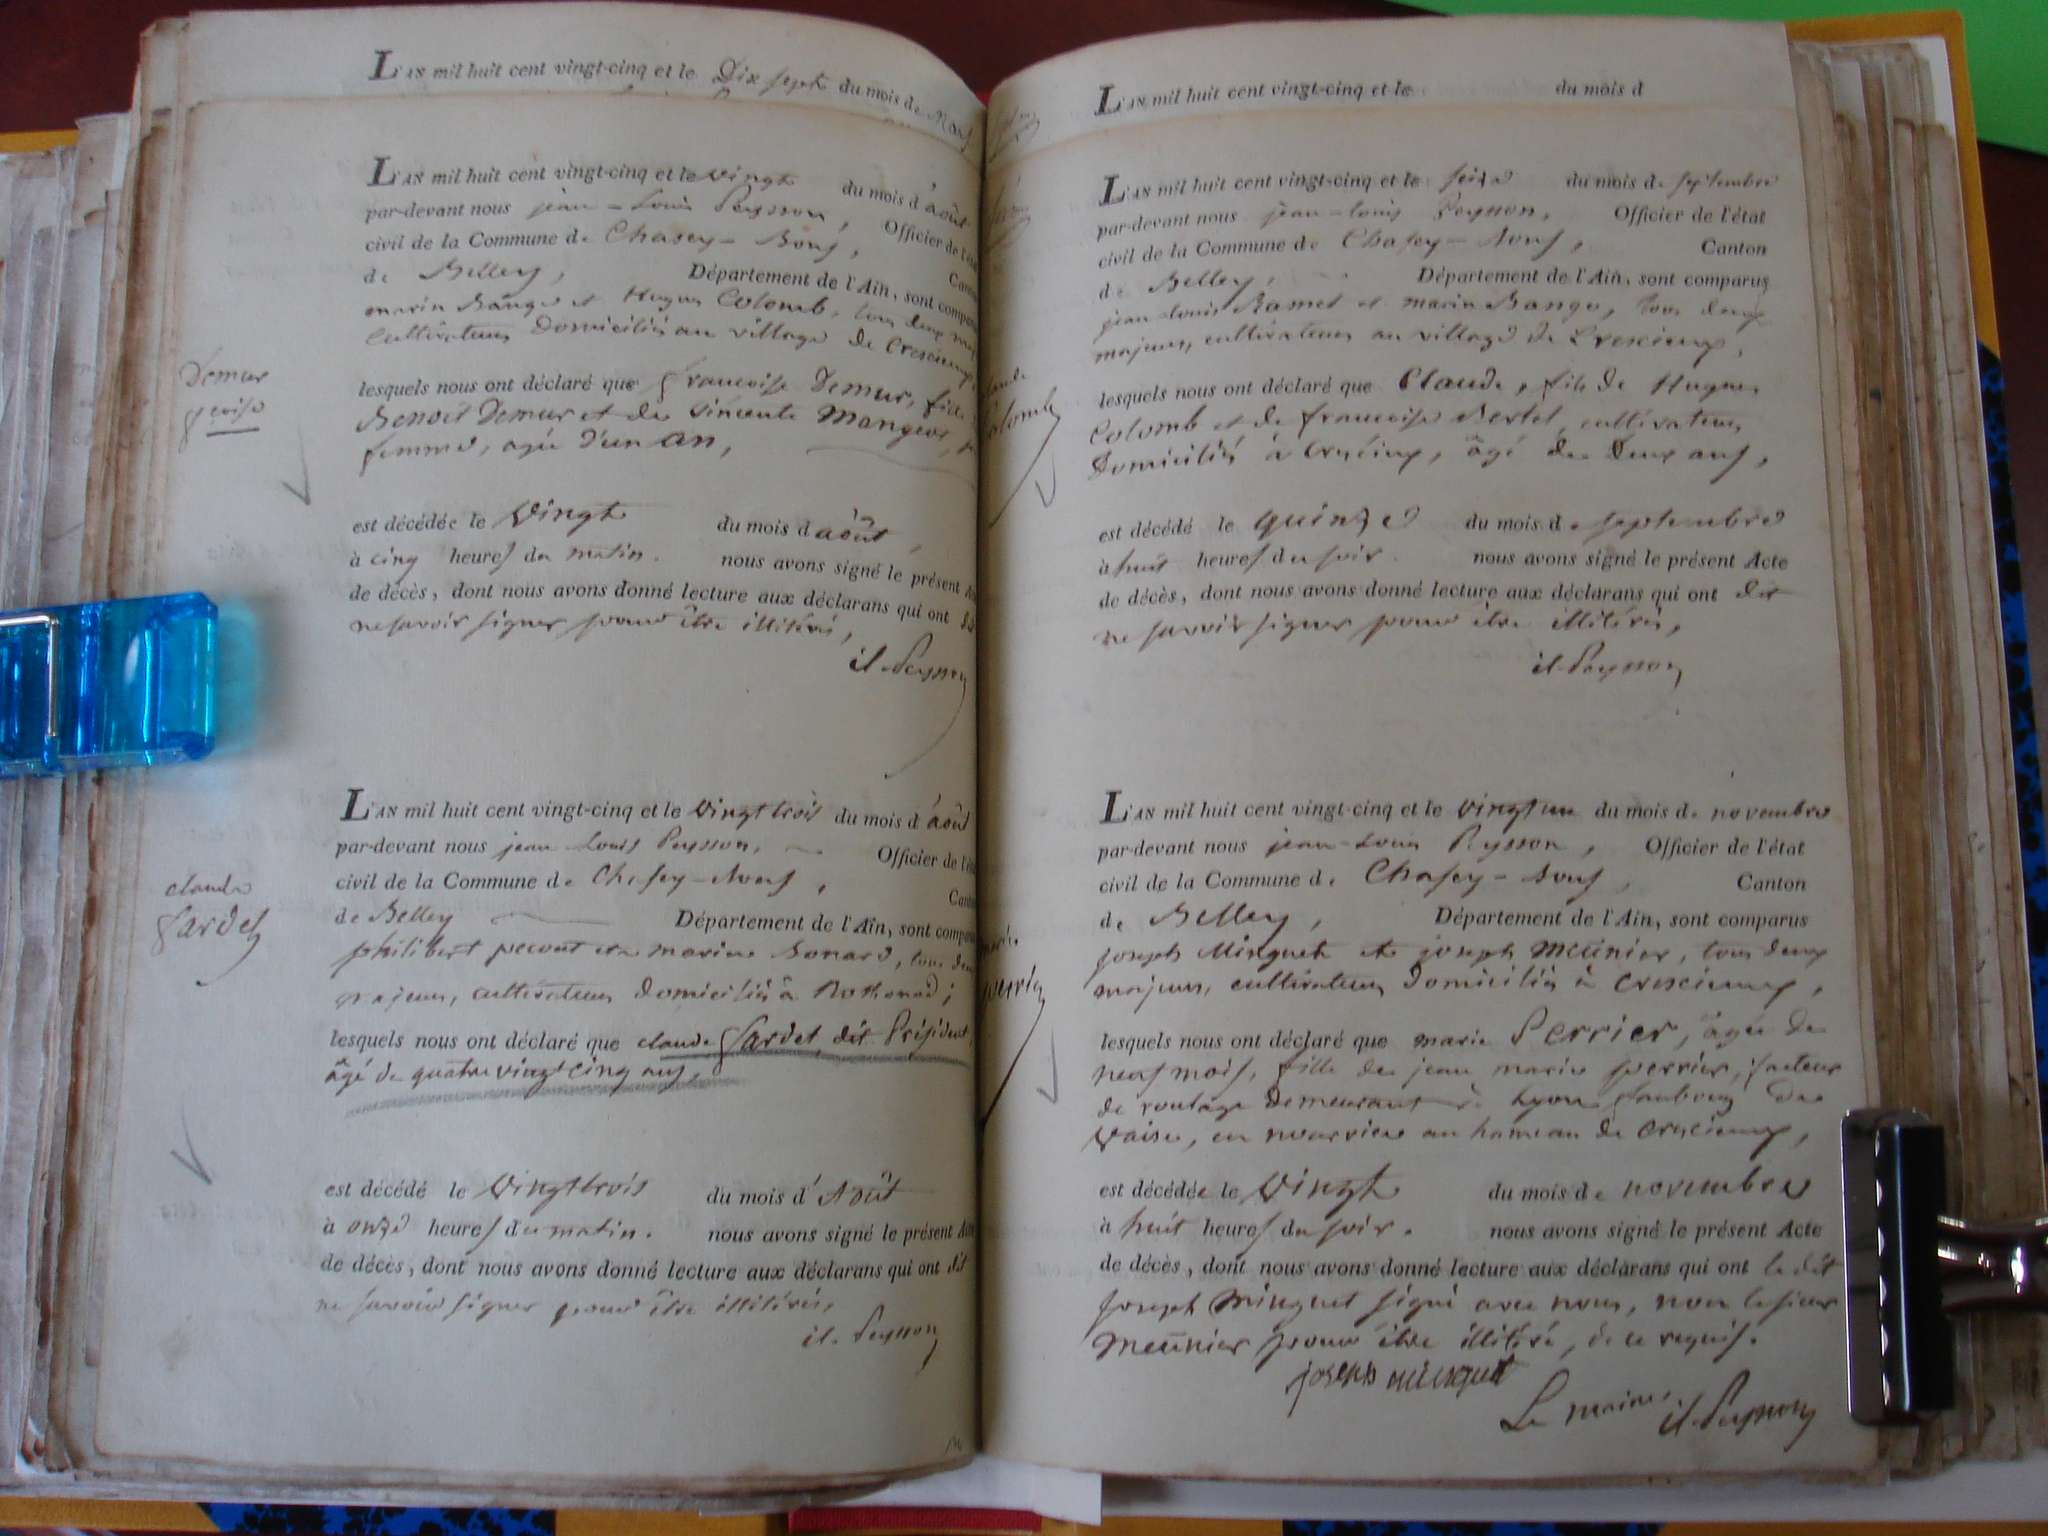 L'AN mil huit cent vingt-cinq et le Dix sept du mois de Mars
L'AN mil huit cent vingt-cinq et le vingt du mois d'août
par-devant nous jean-Louis Peysson, Officier de l'état
civil de la Commune de Chasey-Bons,
de Belley, Département de l'Ain, sont comparus
marin Bange et Hugues Colomb, tous deux
cultivateurs Domiciliés au village de Crescieux,
Demur
lesquels nous ont déclaré que francoise Demur, fille
Benoit Demur et de vincente Mangeot,
femme, agée d'un an,
est décédée le vingt du mois d'août,
à cinq heures du matin. nous avons signé le présent Acte
de décès, dont nous avons donné lecture aux déclarans qui ont dit
ne savoir signer pour être illitérés,
jl. Peysson
L'AN mil huit cent vingt-cinq et le vingt trois du mois d'août
par-devant nous jean-Louis Peysson, Officier de l'état
civil de la Commune de Chasey-Bons, Canton
claude
Gardet
de Belley Département de l'Ain, sont comparus
philibert pecout et marin Bonard, tous deux
majeurs, cultivateurs domiciliés à Rothonod;
lesquels nous ont déclaré que claude Gardet, dit Président,
âgé de quatre vingt cinq ans,
est décédé le vingt trois du mois d'Août
à onze heures du matin. nous avons signé le présent Acte
de décès, dont nous avons donné lecture aux déclarans qui ont dit
ne savoir signer pour être illitérés,
jl. Peysson
L'AN mil huit cent vingt-cinq et le du mois d
L'AN mil huit cent vingt-cinq et le seize du mois de septembre
par-devant nous jean-louis Peysson, Officier de l'état
civil de la Commune de Chasey-Bons, Canton
de Belley, Département de l'Ain, sont comparus
jean-louis Ramel et marin Bange, tous deux
majeurs, cultivateurs au village de Crescieux,
claude
Colomb
lesquels nous ont déclaré que Claude, fils de Hugues
Colomb et de francoise Bertet, cultivateurs
Domiciliés à Crescieux, âgé de Deux ans,
est décédé le quinze du mois de septembre
à huit heures du soir. nous avons signé le présent Acte
de décès, dont nous avons donné lecture aux déclarans qui ont dit
ne savoir signer pour être illitérés,
jl. Peysson
L'AN mil huit cent vingt-cinq et le vingt un du mois de novembre
par-devant nous jean-Louis Peysson, Officier de l'état
civil de la Commune de Chasey-Bons, Canton
de Belley, Département de l'Ain, sont comparus
joseph Minguet et joseph Meunier, tous deux
majeurs, cultivateurs domiciliés à Crescieux,
marie
perrier
lesquels nous ont déclaré que marie Perrier, âgée de
neuf mois, fille de jean marie perrier, facteur
de roulage demeurant à Lyon faubourg de
Vaise, en nourrice au hameau de Crescieux,
est décédée le vingt du mois de novembre
à huit heures du soir. nous avons signé le présent Acte
de décès, dont nous avons donné lecture aux déclarans qui ont le dit
Joseph Minguet signé avec nous, non le sieur
Meunier pour être illitéré, de ce requis.
joseph minguet
Le maire jl. Peysson